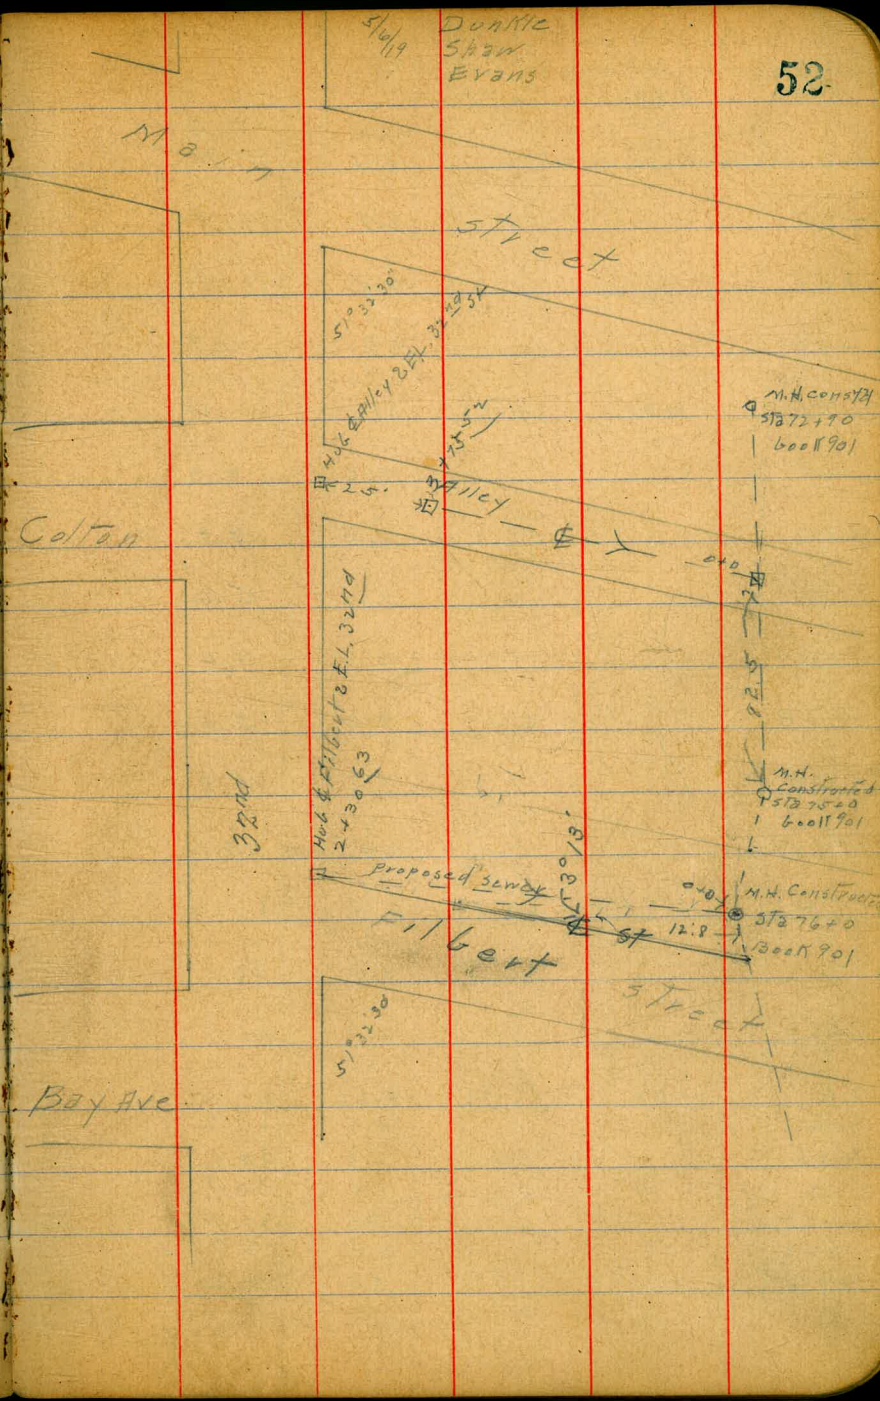 5/6/19
Dunkle
Shaw
Evans
52
Main
street
51° 32' 30"
Hub ₵ Alley & E.L. 32nd St
M.H. const'd
Sta 72+90
book 901
3+75.52
25'
Alley
₵
Colton
0+0
82.5
Hub ₵ Filbert & E.L. 32nd
2+30.63
32nd
M.H.
Constructed
Sta 75+0
book 901
53° 13'
proposed sewer
0+0
M.H. Constructed
Sta 76+0
Book 901
₵ St
12.8
Filbert
street
51° 32' 30"
Bay Ave